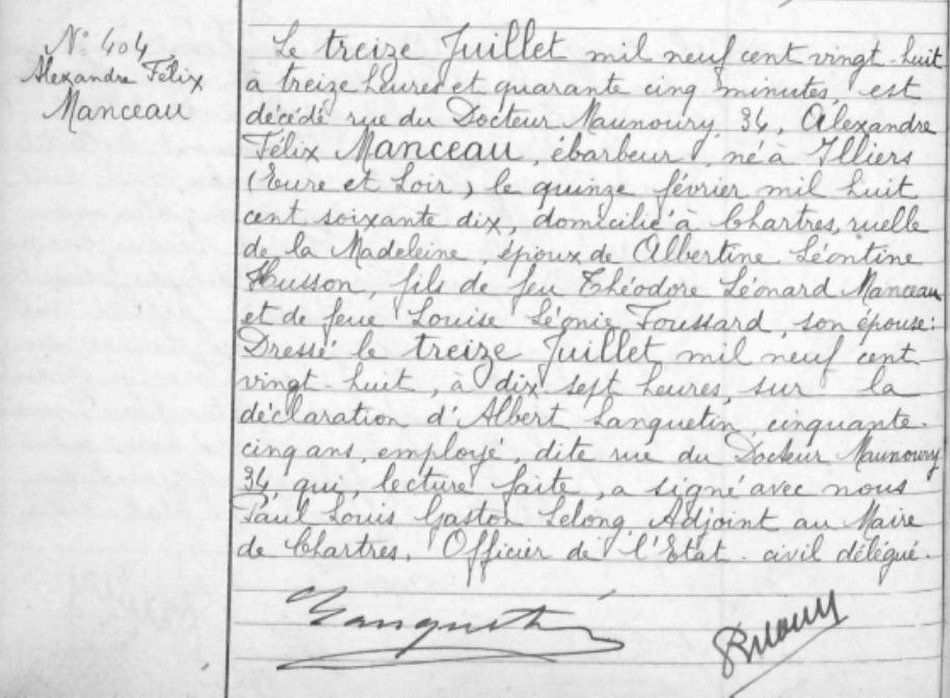 N° 404
Alexandre Félix
Manceau
Le treize Juillet mil neuf cent vingt-huit
à treize heures et quarante cinq minutes, est
décédé rue du Docteur Maunoury, 34, Alexandre
Félix Manceau, ébarbeur, né à Illiers
(Eure et Loir) le quinze février mil huit
cent soixante dix, domicilié à Chartres, ruelle
de la Madeleine, époux de Albertine Léontine
Husson, fils de feu Théodore Léonard Manceau
et de feue Louise Léonie Foussard, son épouse:
Dressé le treize Juillet mil neuf cent
vingt huit, à dix sept heures, sur la
déclaration d'Albert Lanquetin, cinquante-
cinq ans, employé, dite rue du Docteur Maunoury
34 qui, lecture faite, a signé avec nous
Paul Louis Gaston Lelong Adjoint au Maire
de Chartres, Officier de l'Etat-civil délégué.
Lanquetin